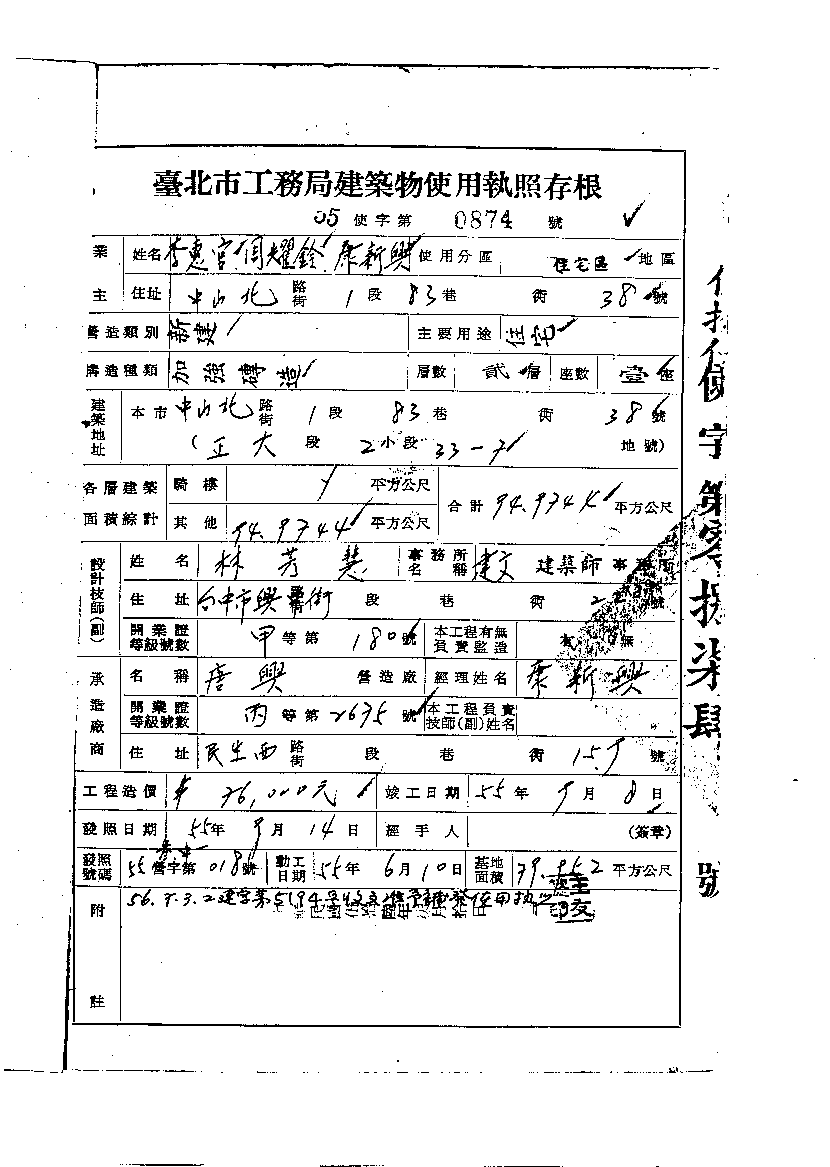 臺北市工務局建築物使用執照存根
55 使字第 0874 號
業主 姓名 李惠宮 周耀銓 康新興 使用分區 住宅區 地區
住址 中山北 路街 1 段 83 巷 衖 38 號
營造類別 新建 主要用途 住宅
構造種類 加強磚造 層數 貳 層 座數 壹 座
建築地址 本市 中山北 路街 1 段 83 巷 衖 38 號
(正大 段 2 小段 33-7 地號)
各層建築面積綜計 騎樓 平方公尺 合計 94.9744 平方公尺
其他 94.9744 平方公尺
設計技師(副) 姓名 林芳慧 事務所名稱 建文 建築師事務所
住址 台中市興 街 段 巷 衖 號
開業證等級號數 甲 等第 1806 號 本工程有無負責監造 無
承造廠商 名稱 唐興 營造廠 經理姓名 康新興
開業證等級號數 丙 等第 2675 號 本工程負責技師(副)姓名
住址 民生西 路街 段 巷 衖 159 號
工程造價 76,000元 竣工日期 55 年 9 月 8 日
發照日期 55 年 9 月 14 日 經手人 (簽章)
發照號碼 55 營字第 018 號 動工日期 55 年 6 月 10 日 基地面積 79. 平方公尺
附註 56. 建字第5194號收文准予補發使用執照
使字第零捌柒肆號